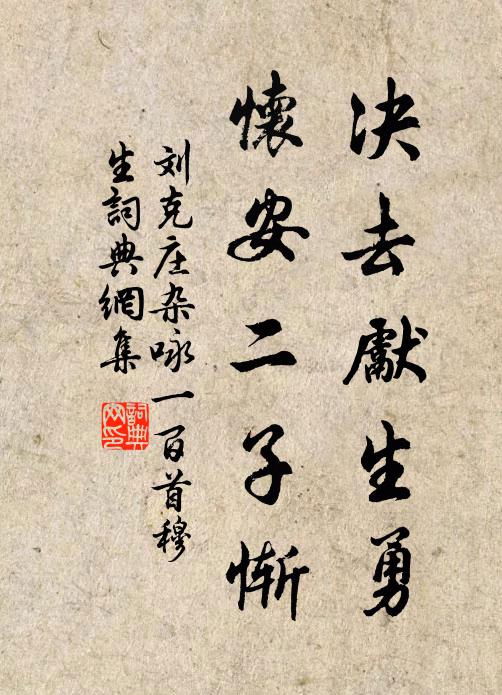 决去獻生勇
懷安二子慚
刘克庄杂咏一百首穆
生詞典網集
詞典网印